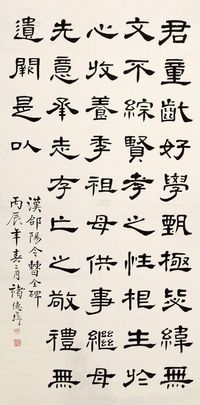 君童齔好學甄極毖緯無
文不綜賢孝之性根生於
心收養季祖母供事繼母
先意承志存亡之敬禮無
遺闕是以
漢郃陽令曹全碑
丙辰年春三月 諸德彝